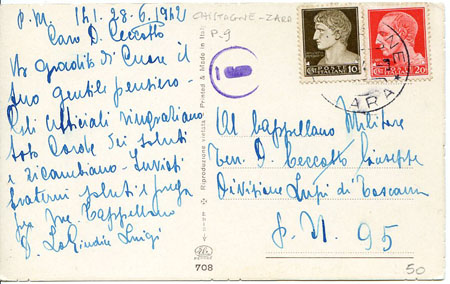 P.M. 141. 28-6-1942
Caro D. Ceccotto
Ho gradito di cuore il
suo gentile pensiero -
Gli ufficiali ringraziano
dei saluti
e ricambiano - Inviati
fraterni saluti e prega
per me. Cappellano
D. Lo Giudice Luigi
CASTAGNE - ZARA
P-9
Printed & Made in Italy
Riproduzione vietata
708
POSTE ITALIANE
10
20
ZARA
Al Cappellano Militare
Ten. D. Ceccotto Giuseppe
Divisione Lupi di Toscana
P.M. 95
50